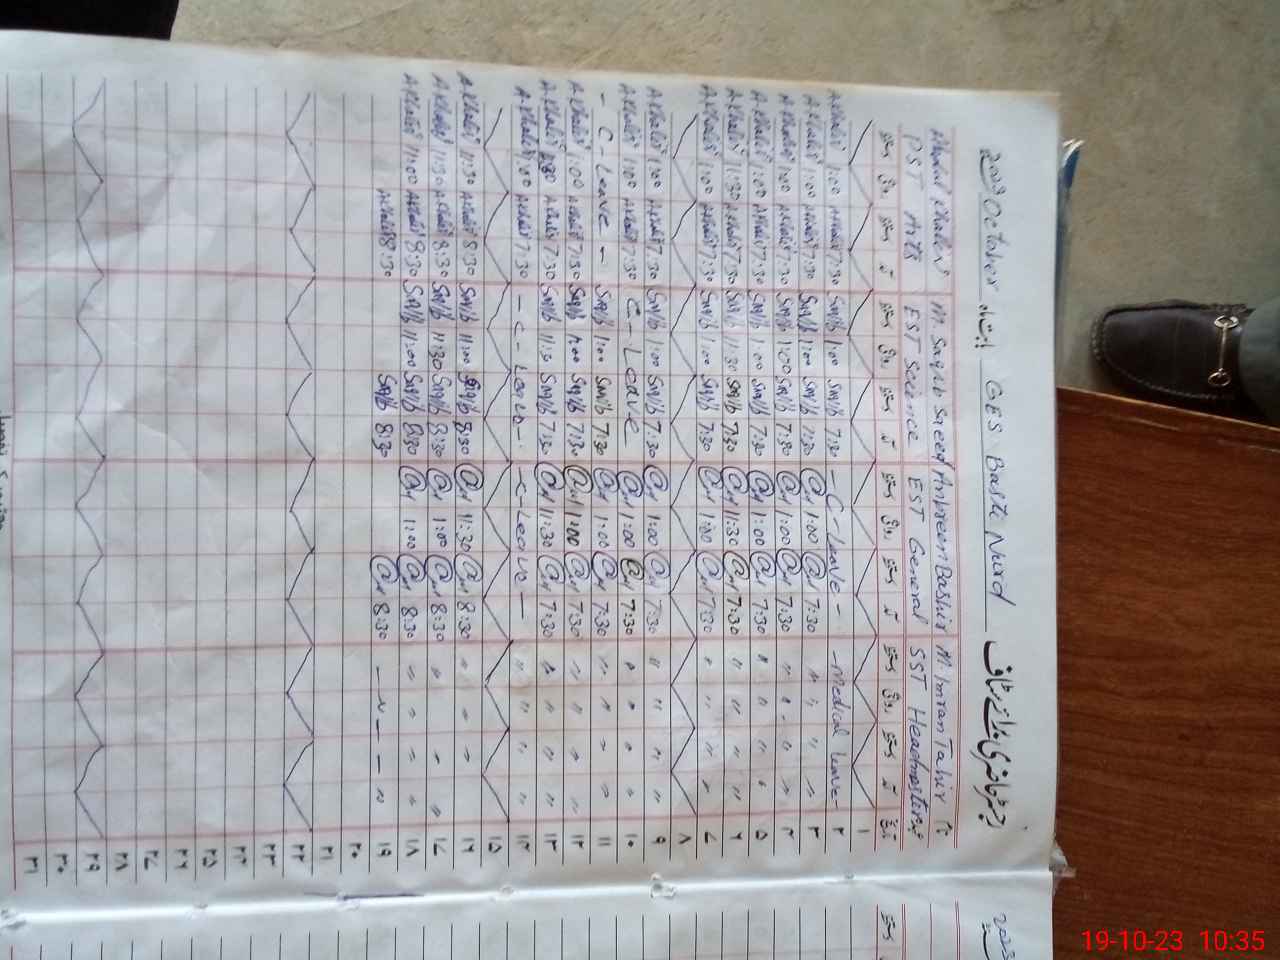 2023 October بابت ماہ GES Basti Nurd رجسٹر حاضری برائے سٹاف
Abdul Khaliq M. Saqib Saeed Anbreen Bashir M. Imran Tahir نام
PST Arts EST Science EST General SST Headmaster عہدہ
دستخط روانگی دستخط آمد دستخط روانگی دستخط آمد دستخط روانگی دستخط آمد دستخط روانگی دستخط آمد تاریخ
۱
A.Khaliq 1:00 A.Khaliq 7:30 Saqib 1:00 Saqib 7:30 - C-Leave - - Medical Leave - ۲
A.Khaliq 1:00 A.Khaliq 7:30 Saqib 1:00 Saqib 7:30 1:00 7:30 " " " " ۳
A.Khaliq 1:00 A.Khaliq 7:30 Saqib 1:00 Saqib 7:30 1:00 7:30 " " " " ۴
A.Khaliq 1:00 A.Khaliq 7:30 Saqib 1:00 Saqib 7:30 1:00 7:30 " " " " ۵
A.Khaliq 11:30 A.Khaliq 7:30 Saqib 11:30 Saqib 7:30 11:30 7:30 " " " " ۶
A.Khaliq 1:00 A.Khaliq 7:30 Saqib 1:00 Saqib 7:30 1:00 7:30 " " " " ۷
۸
A.Khaliq 1:00 A.Khaliq 7:30 Saqib 1:00 Saqib 7:30 1:00 7:30 " " " " ۹
A.Khaliq 1:00 A.Khaliq 7:30 C-Leave 1:00 7:30 " " " " ۱۰
- C-Leave - Saqib 1:00 Saqib 7:30 1:00 7:30 " " " " ۱۱
A.Khaliq 1:00 A.Khaliq 7:30 Saqib 1:00 Saqib 7:30 1:00 7:30 " " " " ۱۲
A.Khaliq A.Khaliq 7:30 Saqib 11:30 Saqib 7:30 11:30 7:30 " " " " ۱۳
A.Khaliq 1:00 A.Khaliq 7:30 - C-Leave - - C-Leave - " " " " ۱۴
۱۵
A.Khaliq 11:30 A.Khaliq 8:30 Saqib 11:00 Saqib 8:30 11:30 8:30 " " " " ۱۶
A.Khaliq 11:30 A.Khaliq 8:30 Saqib 11:30 Saqib 8:30 1:00 8:30 " " " " ۱۷
A.Khaliq 11:00 A.Khaliq 8:30 Saqib 11:00 Saqib 8:30 1:00 8:30 " " " " ۱۸
A.Khaliq 8:30 Saqib 8:30 8:30 — " — — " ۱۹
۲۰
۲۱
۲۲
۲۳
۲۴
۲۵
۲۶
۲۷
۲۸
۲۹
۳۰
۳۱
2023
دستخط
19-10-23 10:35